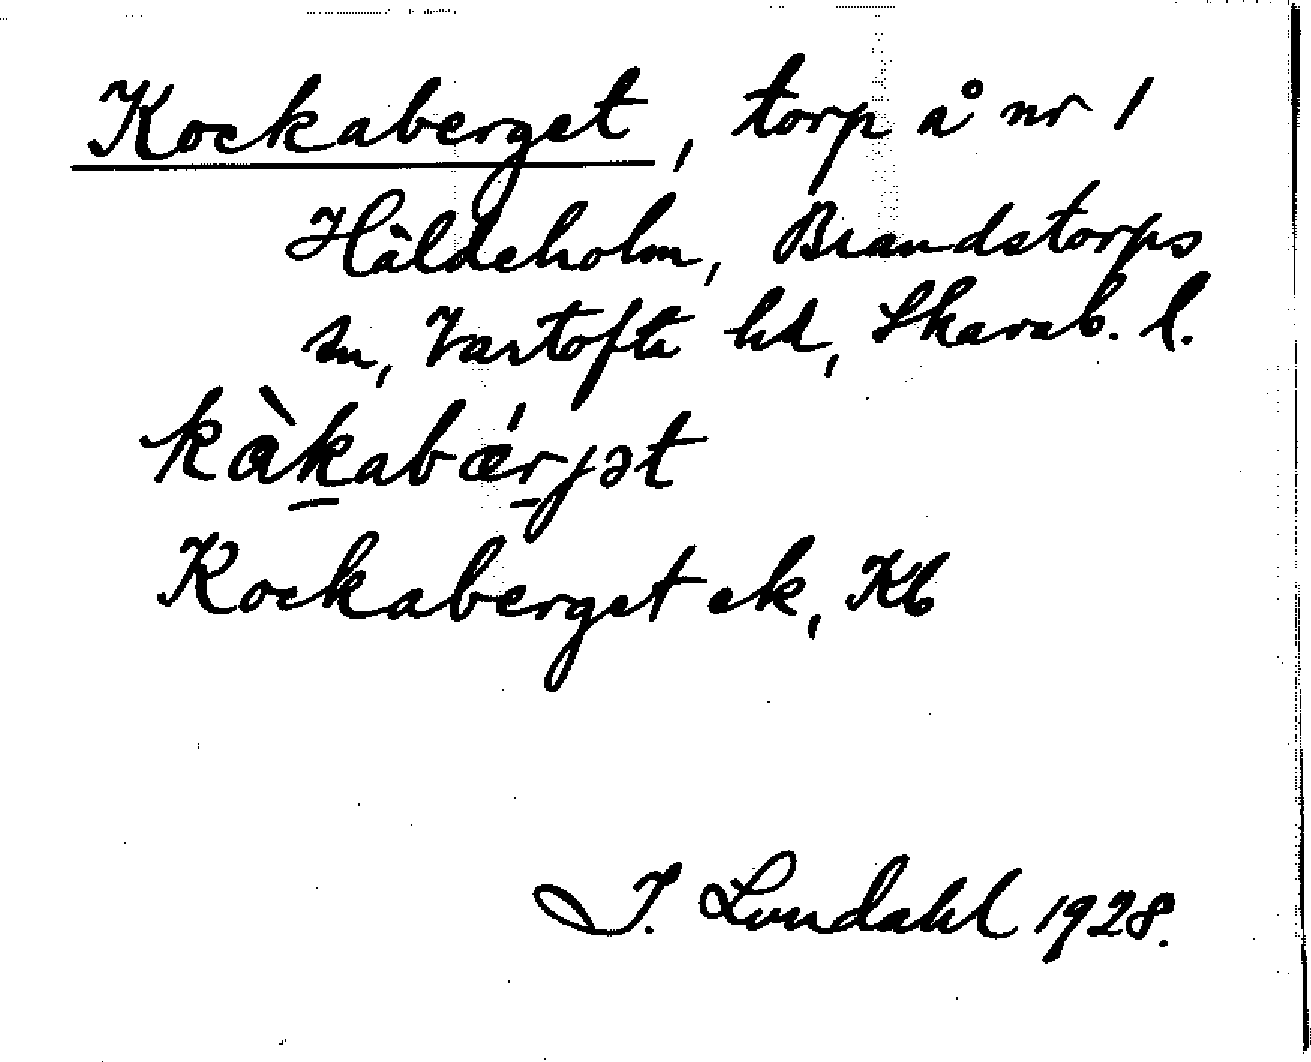 Kockaberget, torp å nr 1
Häldeholm, Brandstorps
sn, Vartofta hd, Skarab. l.
kàk̠abǽr̠jət
Kockaberget ek, Kb
I. Lundahl 1928.